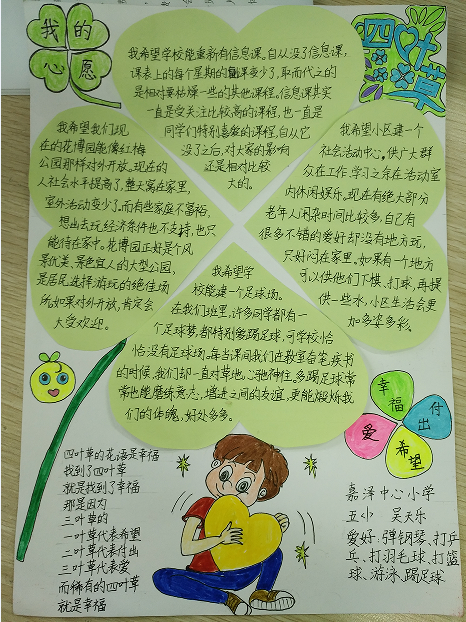 我的
心愿
四叶草
我希望学校能重新有信息课。自从没了信息课,
课表上的每个星期的课变少了,取而代之的
是相对要枯燥一些的其他课程。信息课其实
一直是受关注比较高的课程,也一直是
同学们特别喜欢的课程,自从它
没了之后,对大家的影响
还是相对比较
大的。
我希望我们现
在的花博园能像红梅
公园那样对外开放。现在的
人社会水平提高了,整天窝在家里,
室外活动变少了。而有些家庭不富裕,
想出去玩,经济条件也不支持,也只
能待在家中。花博园正好是个风
景优美、景色宜人的大型公园,
是居民选择游玩的绝佳场
所,如果对外开放,肯定会
大受欢迎。
我希望小区建一个
社会活动中心,供广大群
众在工作、学习之余在活动室
内休闲娱乐。现在有绝大部分
老年人闲杂时间比较多,自己有
很多不错的爱好却没有地方玩,
只好闷在家里。如果有一个地方
可以供他们下棋、打球,再提
供一些水,小区生活会更
加多姿多彩。
我希望学
校能建一个足球场。
在我们班里,许多同学都有一
个足球梦,都特别爱踢足球,可学校恰
恰没有足球场。每当课间我们在教室奋笔疾书
的时候,我们却一直对草地心驰神往。多踢足球常
常也能磨练意志,增进之间的友谊,更能锻炼我
们的体魄,好处多多。
幸福
付出
爱
希望
四叶草的花语是幸福
找到了四叶草
就是找到了幸福
那是因为
三叶草的
一叶草代表希望
二叶草代表付出
三叶草代表爱
而稀有的四叶草
就是幸福
嘉泽中心小学
五(1) 吴天乐
爱好:弹钢琴、打乒
乓、打羽毛球、打篮
球、游泳、踢足球